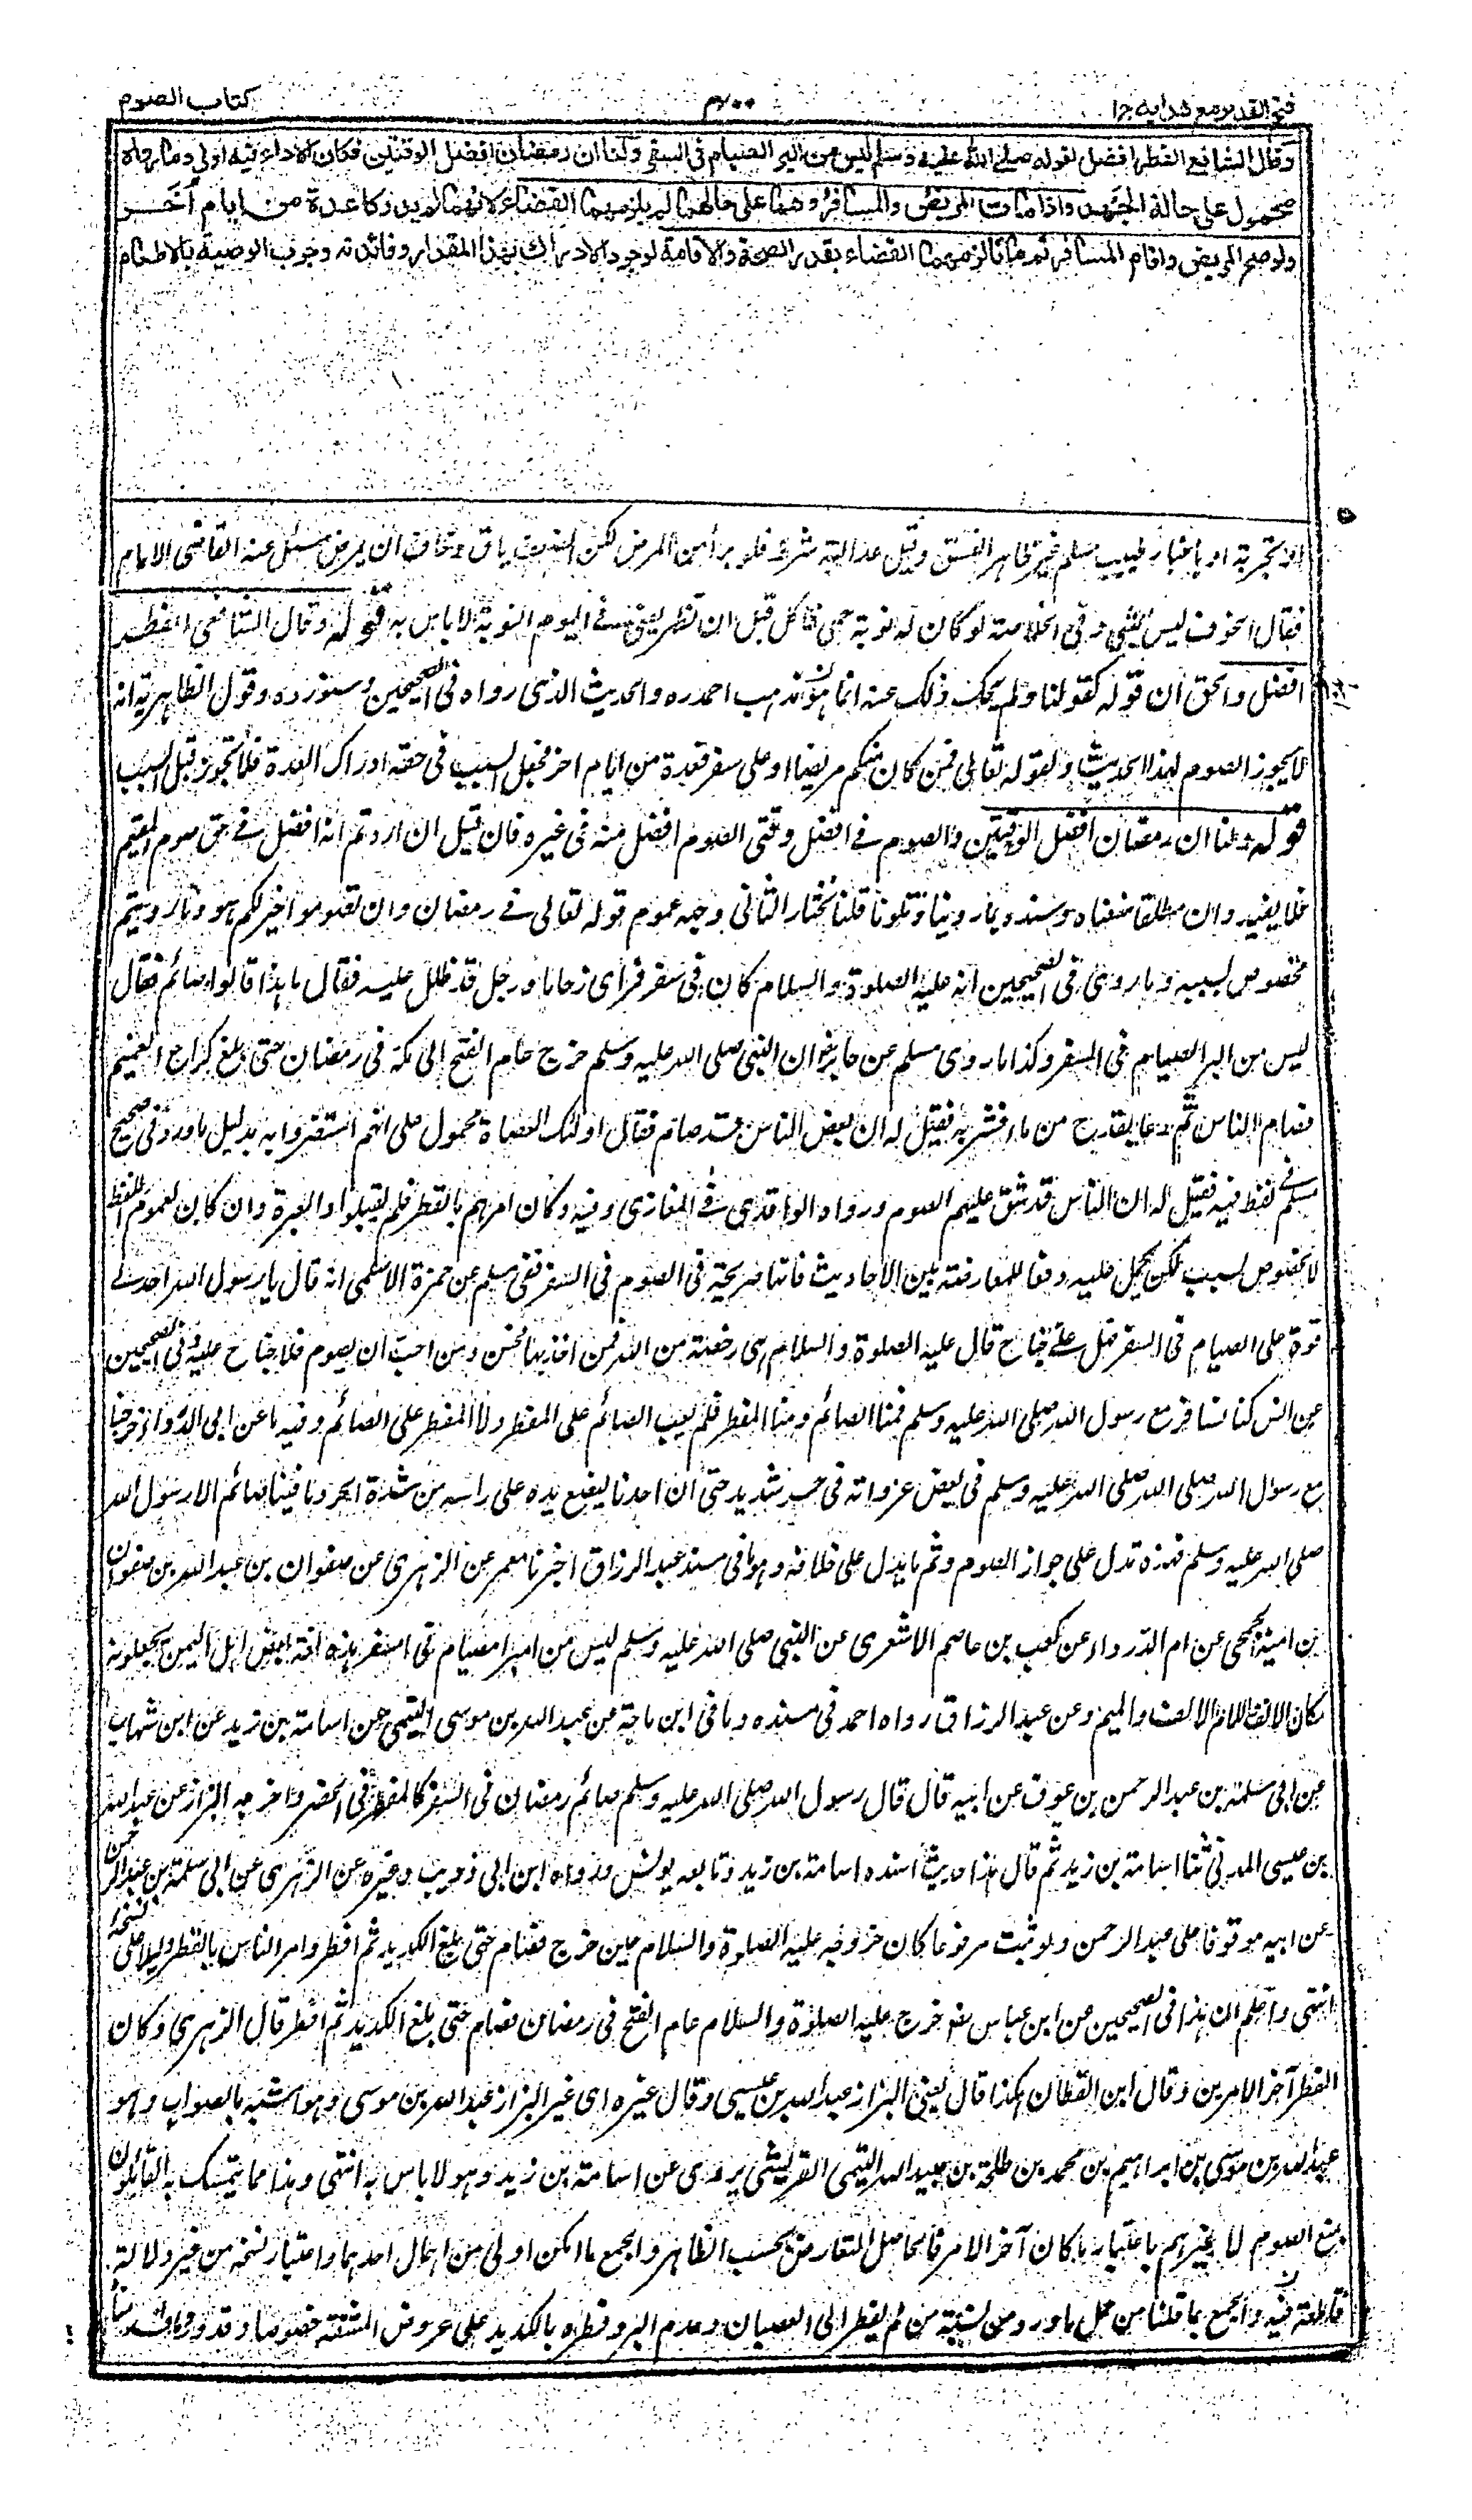 فتح القدير مع هدايه ج١
٤٠٠
كتاب الصوم
وقال الشافعي الفطر افضل لقوله صلى الله عليه وسلم ليس من البر الصيام في السفر ولنا ان رمضان افضل الوقتين فكان الاداء فيه اولى وما رواه
محمول على حالة الجهد واذا مات المريض والمسافر وهما على حالهما لم يلزمهما القضاء لانهما لم يدركا عدة من ايام أخر
ولو صح المريض واقام المسافر ثم ماتا لزمهما القضاء بقدر الصحة والاقامة لوجود الادراك بهذا المقدار وفائدته وجوب الوصية بالاطعام
او تجربة او باخبار طبيب مسلم غير ظاهر الفسق وقيل عدالته شرط فلو برأ من المرض لكن الضعف باق وخاف ان يمرض سئل عنه القاضي الامام
فقال الخوف ليس بشئ وفي الخلاصة لو كان له نوبة حمى فاكل قبل ان تظهر يعني في اليوم النوبة لا باس به قوله وقال الشافعي الفطر
افضل والحق ان قوله كقولنا ولم يحك ذلك عنه انما هو مذهب احمد ره والحديث الذي رواه في الصحيحين وسنورده وقول الظاهرية انه
لا يجوز الصوم لهذا الحديث ولقوله تعالى فمن كان منكم مريضا او على سفر فعدة من ايام اخر فجعل السبب في حقه ادراك العدة فلا تجوز قبل السبب
قوله ولنا ان رمضان افضل الوقتين والصوم في افضل وقتي الصوم افضل منه في غيره فان قيل ان اردتم انه افضل في حق صوم المقيم
فلا يفيد وان مطلقا منعناه وسنده ما روينا وتلونا قلنا نختار الثاني وجه عموم قوله تعالى في رمضان وان تصوموا خير لكم وما رويتم
مخصوص بسببه وما روى في الصحيحين انه عليه الصلوة والسلام كان في سفر فراى زحاما ورجل قد ظلل عليه فقال ما هذا قالوا صائم فقال
ليس من البر الصيام في السفر وكذا ما روى مسلم عن جابر ان النبي صلى الله عليه وسلم خرج عام الفتح الى مكة في رمضان حتى بلغ كراع الغميم
فصام الناس ثم دعا بقدح من ماء فشربه فقيل له ان بعض الناس قد صام فقال اولئك العصاة محمول على انهم استضروا به بدليل ما ورد في صحيح
مسلم في لفظ فيه فقيل له ان الناس قد شق عليهم الصوم ورواه الواقدي في المغازي وفيه وكان امرهم بالفطر فلم يقبلوا والعبرة وان كان لعموم اللفظ
لا بخصوص السبب لكن يحمل عليه دفعا للمعارضة بين الاحاديث فانها صريحة في الصوم في السفر ففي مسلم عن حمزة الاسلمي انه قال يا رسول الله اجد لي
قوة على الصيام في السفر فهل على جناح قال عليه الصلوة والسلام هي رخصة من الله فمن اخذ بها فحسن ومن احب ان يصوم فلا جناح عليه وفي الصحيحين
عن انس كنا نسافر مع رسول الله صلى الله عليه وسلم فمنا الصائم ومنا المفطر فلم يعب الصائم على المفطر ولا المفطر على الصائم وفيه ما عن ابي الدرداء خرجنا
مع رسول الله صلى الله صلى الله عليه وسلم في بعض غزواته في حر شديد حتى ان احدنا ليضع يده على راسه من شدة الحر وما فينا صائم الا رسول الله
صلى الله عليه وسلم فهذه تدل على جواز الصوم وثم ما يدل على خلافه وهو ما في مسند عبد الرزاق اخبرنا معمر عن الزهري عن صفوان بن عبد الله بن صفوان
بن امية الجمحي عن ام الدرداء عن كعب بن عاصم الاشعري عن النبي صلى الله عليه وسلم ليس من امبر امصيام في امسفر هذه لغة بعض اهل اليمن يجعلونه
مكان الالف اللام الالف والميم وعن عبد الرزاق رواه احمد في مسنده وما في ابن ماجة عن عبد الله بن موسى التيمي عن اسامة بن زيد عن ابن شهاب
عن ابي سلمة بن عبد الرحمن بن عوف عن ابيه قال قال رسول الله صلى الله عليه وسلم صائم رمضان في السفر كالمفطر في الحضر واخرجه البزاز عن عبد الله
بن عيسى المدني ثنا اسامة بن زيد ثم قال هذا حديث اسنده اسامة بن زيد وتابعه يونس ورواه ابن ابي ذويب وغيره عن الزهري عن ابي سلمة بن عبد الرحمن
عن ابيه موقوفا على عبد الرحمن ولو ثبت مرفوعا كان خروجه عليه الصلوة والسلام حين خرج فصام حتى بلغ الكديد ثم افطر وامر الناس بالفطر دليلا على نسخه
انتهى واعلم ان هذا في الصحيحين عن ابن عباس خرج عليه الصلوة والسلام عام الفتح في رمضان فصام حتى بلغ الكديد ثم افطر قال الزهري وكان
الفطر آخر الامرين وقال ابن القطان هكذا قال يعني البزاز عبد الله بن عيسى وقال غيره اى غير البزاز عبد الله بن موسى وهو اشبه بالصواب وهو
عبد الله بن موسى بن ابراهيم بن محمد بن طلحة بن عبيد الله التيمى القريشى يروى عن اسامة بن زيد وهو لا باس به انتهى وهذا مما يتمسك به القائلون
بمنع الصوم لا غيرهم باعتبار ما كان آخر الامر فالحاصل التعارض بحسب الظاهر والجمع ما امكن اولى من اهمال احدهما واعتبار نسخه من غير دلالة
قاطعة فيه والجمع بما قلنا من حمل ما ورد من نسبة من لم يفطر الى العصيان وعدم البر وفطره بالكديد على عروض المشقة خصوصا وقد ورد